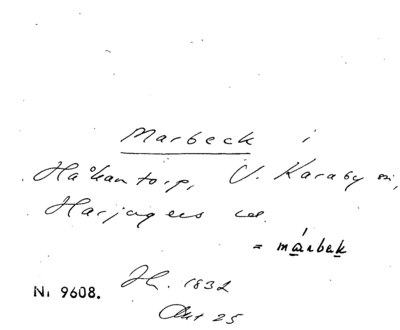 Marbeck i
Håkantorp, V. Karaby sn,
Harjagers
= márbak
Nr 9608.
1832
25